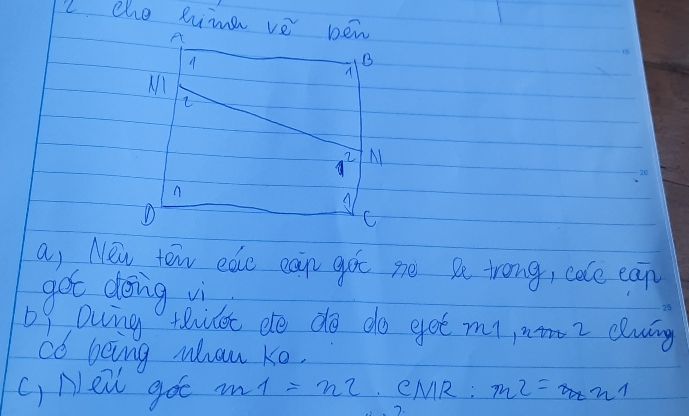 2. cho hình vẽ bên
A
B
1
1
M
2
2
N
1
1
1
D
C
a, Nêu tên các cặp góc so le trong, các cặp
góc đồng vị
b, Dùng thước đo độ đo góc m1, n2 chúng
có bằng nhau ko.
c, Nếu góc m1 = n2. CMR: m2 = n1